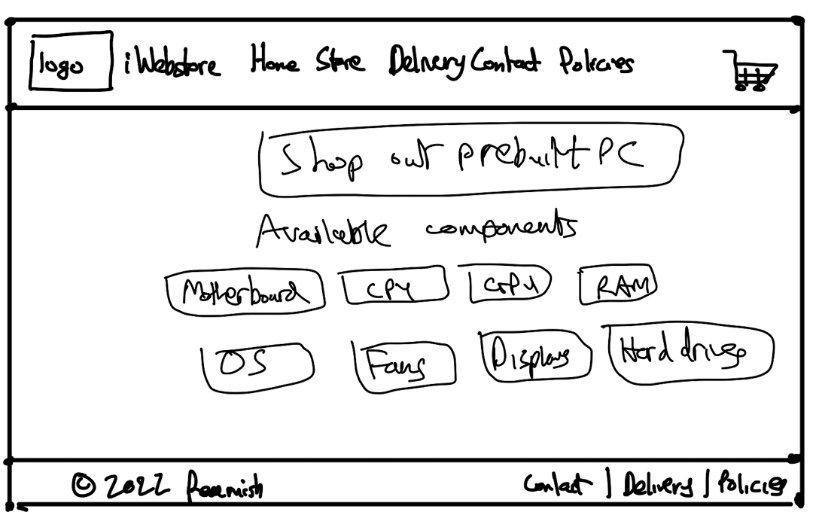 logo iWebstore Home Store Delivery Contact Policies
Shop our prebuilt PC
Available components
Motherboard CPU GPU RAM
OS Fans Displays Hard drives
© 2022 Contact | Delivery | Policies